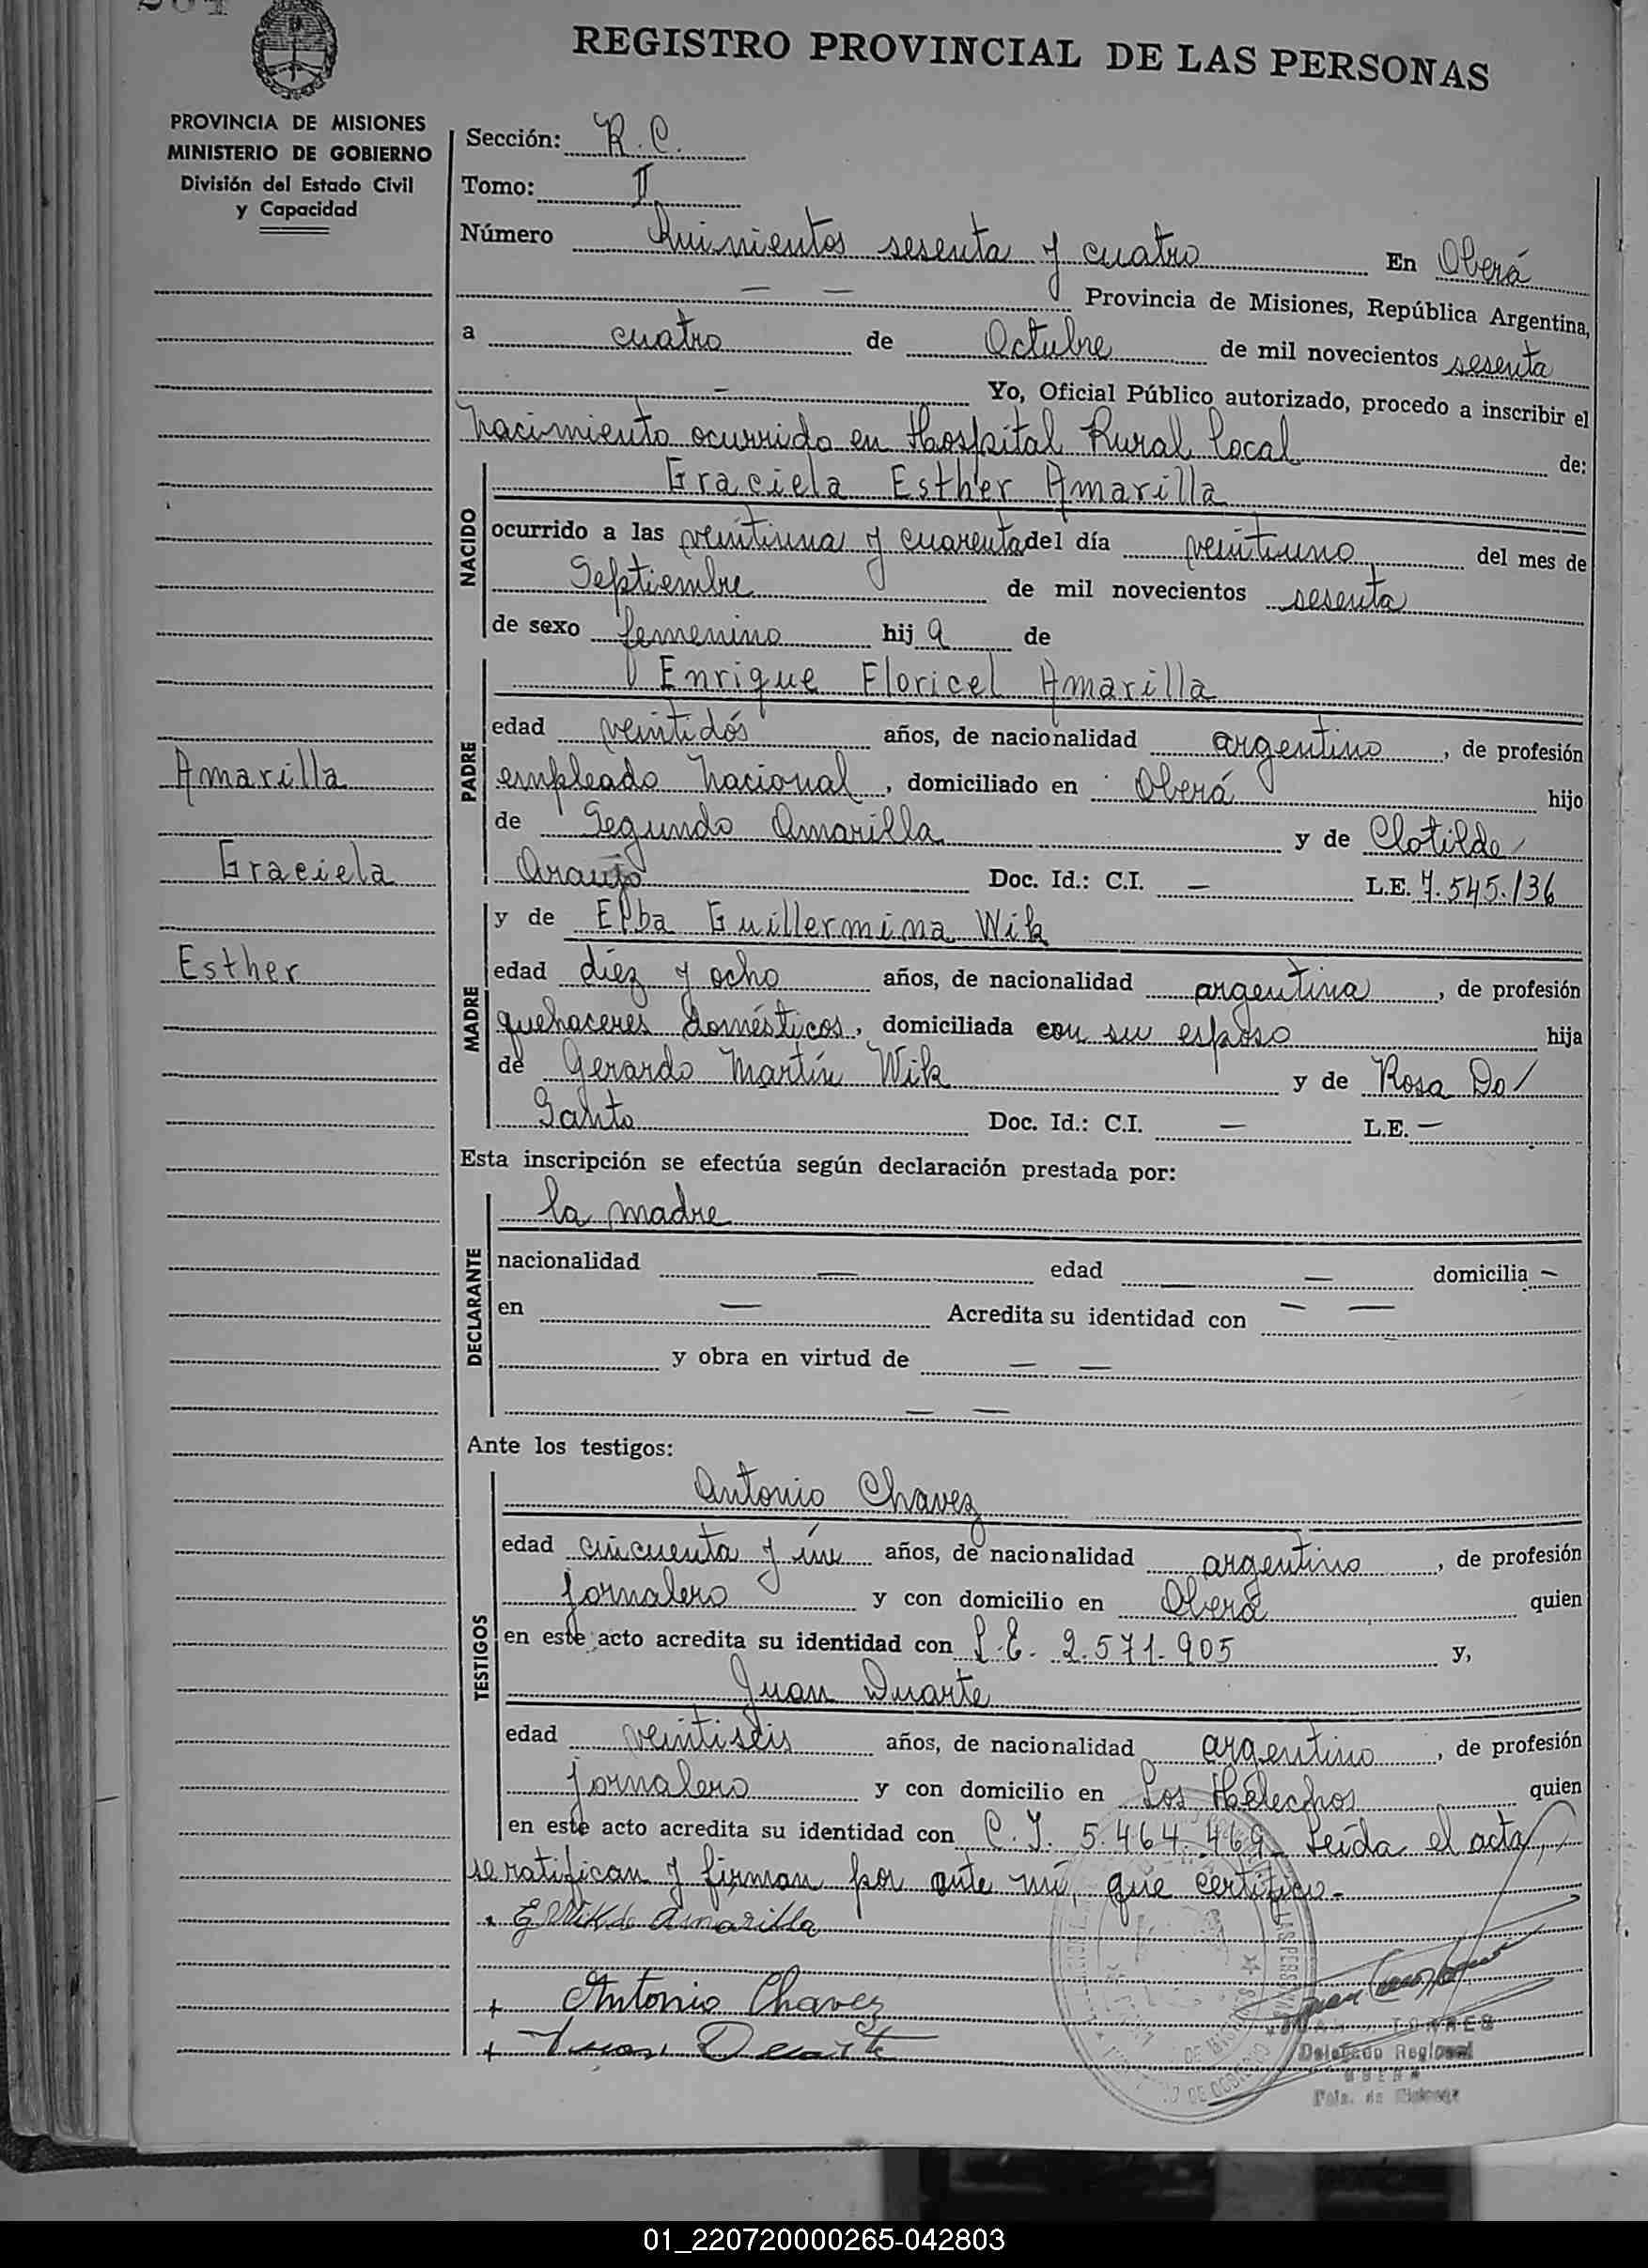 REGISTRO PROVINCIAL DE LAS PERSONAS
PROVINCIA DE MISIONES
MINISTERIO DE GOBIERNO
División del Estado Civil
y Capacidad
Sección: R. C.
Tomo: II
Número Quinientos sesenta y cuatro En Oberá
— — Provincia de Misiones, República Argentina,
a cuatro de Octubre de mil novecientos sesenta
— Yo, Oficial Público autorizado, procedo a inscribir el
nacimiento ocurrido en Hospital Rural Local de:
NACIDO
Graciela Esther Amarilla
ocurrido a las veintiuna y cuarenta del día veintiuno del mes de
Septiembre de mil novecientos sesenta
de sexo femenino hij a de
PADRE
Enrique Floricel Amarilla
edad veintidós años, de nacionalidad argentino, de profesión
empleado nacional, domiciliado en Oberá hijo
de Segundo Amarilla y de Clotilde
Araujo Doc. Id.: C.I. — L.E. 7.545.136
Amarilla
Graciela
Esther
MADRE
y de Elba Guillermina Wik
edad diez y ocho años, de nacionalidad argentina, de profesión
quehaceres domésticos, domiciliada con su esposo hija
de Gerardo Martín Wik y de Rosa Do
Santo Doc. Id.: C.I. — L.E. —
Esta inscripción se efectúa según declaración prestada por:
DECLARANTE
la madre
nacionalidad — edad — domicilia —
en — Acredita su identidad con — —
y obra en virtud de — —
— —
Ante los testigos:
TESTIGOS
Antonio Chavez
edad cincuenta y un años, de nacionalidad argentino, de profesión
jornalero y con domicilio en Oberá quien
en este acto acredita su identidad con L.E. 2.571.905 y,
Juan Duarte
edad veintiseis años, de nacionalidad argentino, de profesión
jornalero y con domicilio en Los Helechos quien
en este acto acredita su identidad con C.I. 5.464.469 Leída el acta,
se ratifican y firman por ante mí, que certifico.-
E. Wik de Amarilla
+ Antonio Chavez
+ Juan Duarte
JUAN TORRES
Delegado Regional
OBERA
Pcia. de Misiones
01_220720000265-042803